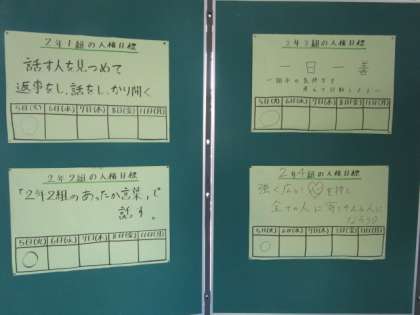 2年1組の人権目標
話す人を見つめて
返事をし、話をしっかり聞く
5日(火) 6日(水) 7日(木) 8日(金) 11日(月)
2年2組の人権目標
「2年2組のあったか言葉」で
話す。
5日(火) 6日(水) 7日(木) 8日(金) 11日(月)
2年3組の人権目標
一日一善
5日(火) 6日(水) 7日(木) 8日(金) 11日(月)
2年4組の人権目標
強く広い心を持ち
全ての人に
5日(火) 6日(水) 7日(木) 8日(金) 11日(月)